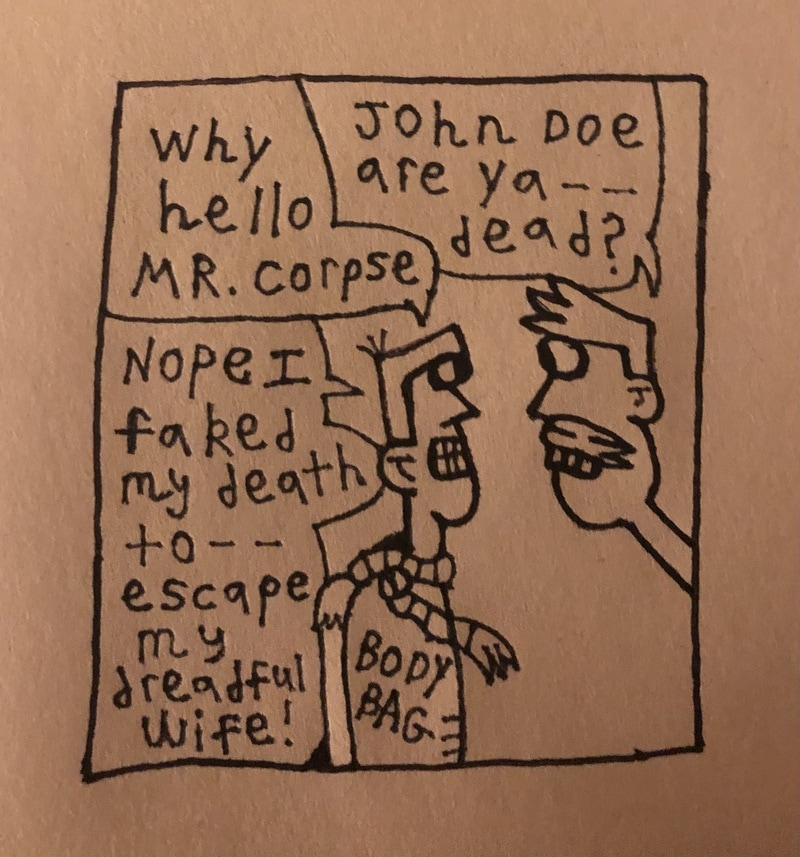 Why
hello
MR. corpse
JOhn DOe
are ya--
dead?
Nope I
faked
my death
to--
escape
my
dreadful
wife!
BODY
BAG